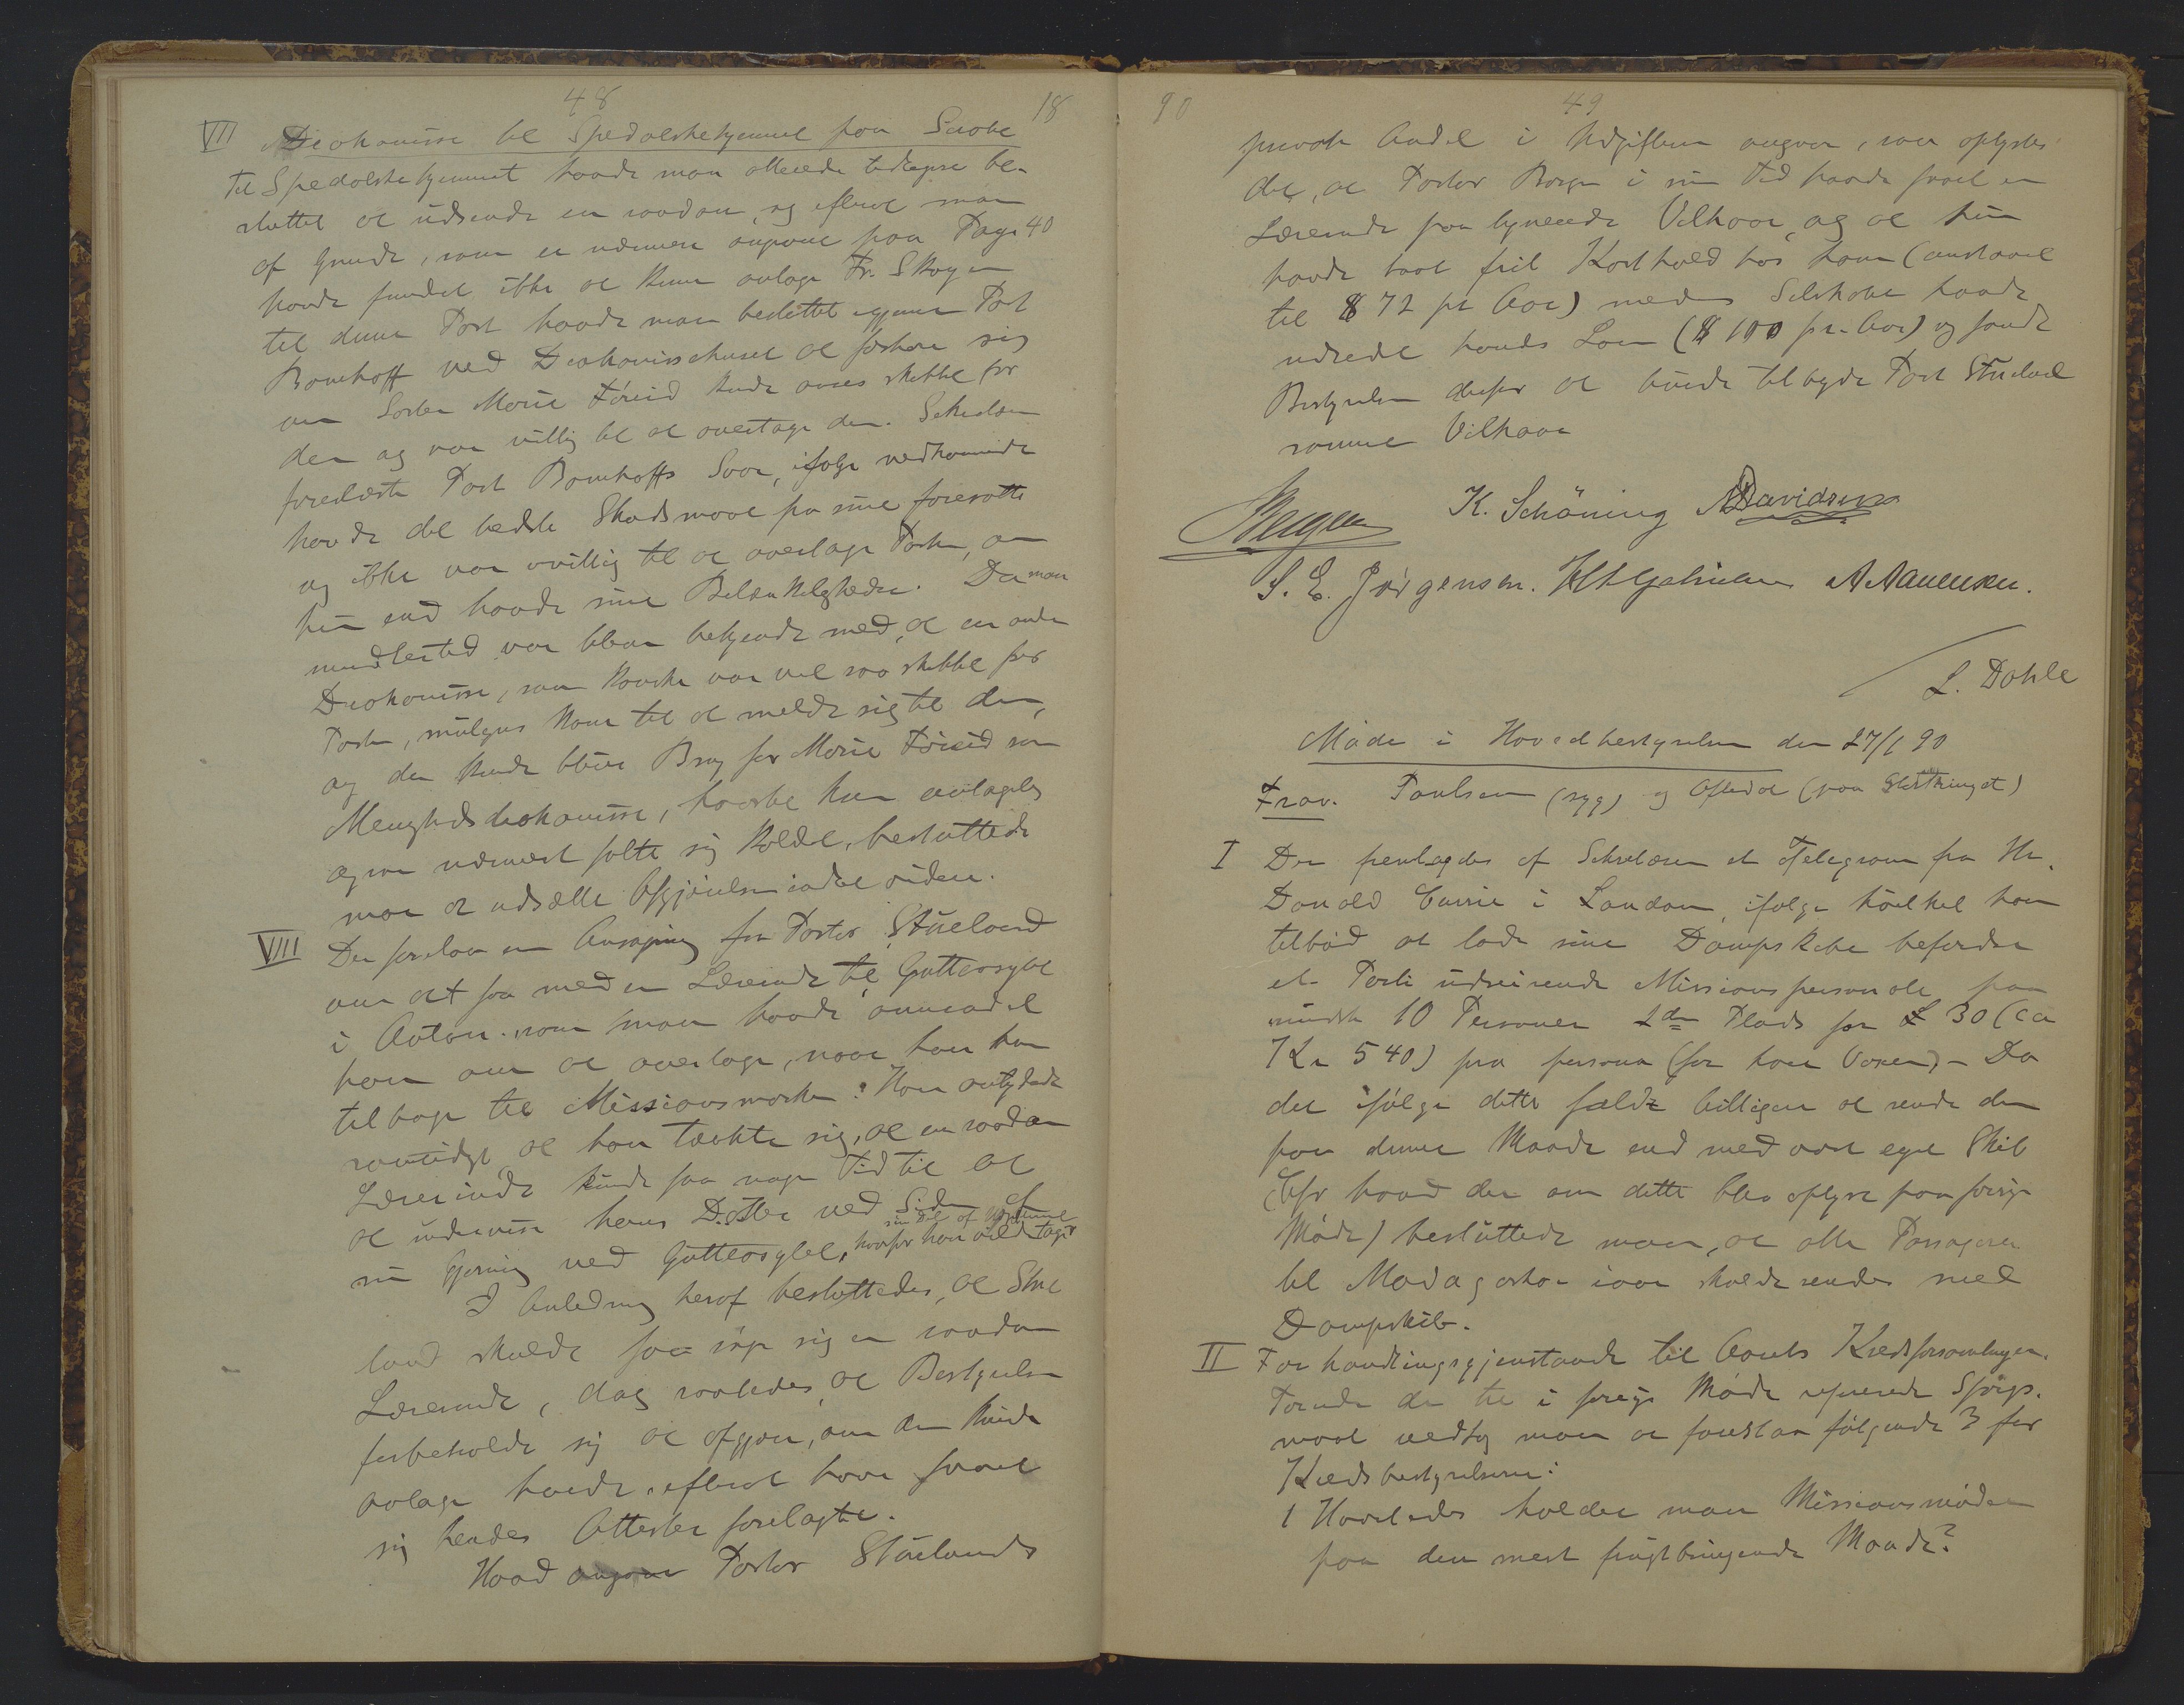 48 18
VII Diakonisse til Spedalskehjemmet paa Sirabe
Til Spedalskehjemmet havde man allerede tidligere be-
sluttet at udsende en saadan, og efterat man
af Grunde, som er nærmere angivne paa Page 40
havde fundet ikke at kunne antage Fr. Skogen
til denne Post havde man besluttet gjennem Past
Bomhoff ved Diakonissehuset at forhøre sig
om Søster Marie Føreid kunde anses skikket for
den og var villig til at overtage den. Sekretæren
forelæste Past Bomhoffs Svar, ifølge vedkommende
havde det bedste Skudsmaal fra sine foresatte
og ikke var uvillig til at overtage Posten, om
hun end havde sine Betænkeligheder. Da man
imidlertid var bleven bekjendt med, at en anden
Diakonisse, som kanske var vel saa skikket for
Posten, muligens kom til at melde sig til den,
og der kunde blive Brug for Marie Føreid som
Menighedsdiakonisse, hvorhelst hun antagelig
ogsaa nærmest følte sig kaldet, besluttede
man at udsætte Afgjørelsen indtil videre.
VIII Der forelaa en Ansøgning fra Pastor Stueland
om at faa med en Lærerinde til Gutteasylet
i Avton. som man havde anmodet
ham om at overtage, naar han kom
tilbage til Missionsmarken. Han antydede
samtidigt at han tænkte sig, at en saadan
Lærerinde kunde faa noget Tid til at
at undervise hans Døttre ved Siden af
sin Gjerning ved Gutteasylet, hvorfor han vilde tage
sin Del af
I Anledning heraf besluttedes, at Stue
land skulde faa søge sig en saadan
Lærerinde, dog saaledes, at Bestyrelsen
forbeholdt sig at afgjøre, om den kunde
antage hende, efterat have faaet
sig hendes Attester forelagte.
Hvad angaar Pastor Stuelands
90 49
private Andel i Udgifterne angaar, saa oplystes
det, at Pastor Borgen i sin Tid havde faaet en
Lærerinde paa lignende Vilkaar, og at hun
havde havt frit Kosthold hos ham (anslaaet
til $ 72 pr Aar) medens Selskabet havde
udredet hendes Løn ($ 100 pr. Aar) og fandt
Bestyrelsen derfor at burde tilbyde Past Stueland
samme Vilkaar
Borgen K. Schöning A Davidsen
S. E. Jörgensen. A Aanensen.
L. Dahle
Møde i Hovedbestyrelsen den 27/1 90
Frav. Paulsen (syg) og Oftedal (paa Storthinget)
I Der fremlagdes af Sekretæren et Telegram fra Hr.
Donald Currie i London, ifølge hvilket han
tilbød at lade sine Dampskibe befordre
et Parti udreisende Missionspersonale paa
mindst 10 Personer 2den Plads for £ 30 (ca
Kr 540) pro persona (for hver Voxen) - Da
det ifølge dette faldt billigere at sende dem
paa denne Maade end med vort eget Skib
(Efr hvad der om dette blev oplyst paa forrige
Møde) besluttede man, at alle Passagerer
til Madagaskar iaar skulde sendes med
Dampskib.
II Forhandlingsgjenstande til Aarets Kredsforsamlinger.
Foruden de til i forrige Møde refererede Spørgs-
maal vedtog man at foreslaa følgende 3 for
Kredsbestyrelserne:
1 Hvorledes holder man Missionsmøder
paa den mest frugtbringende Maade?